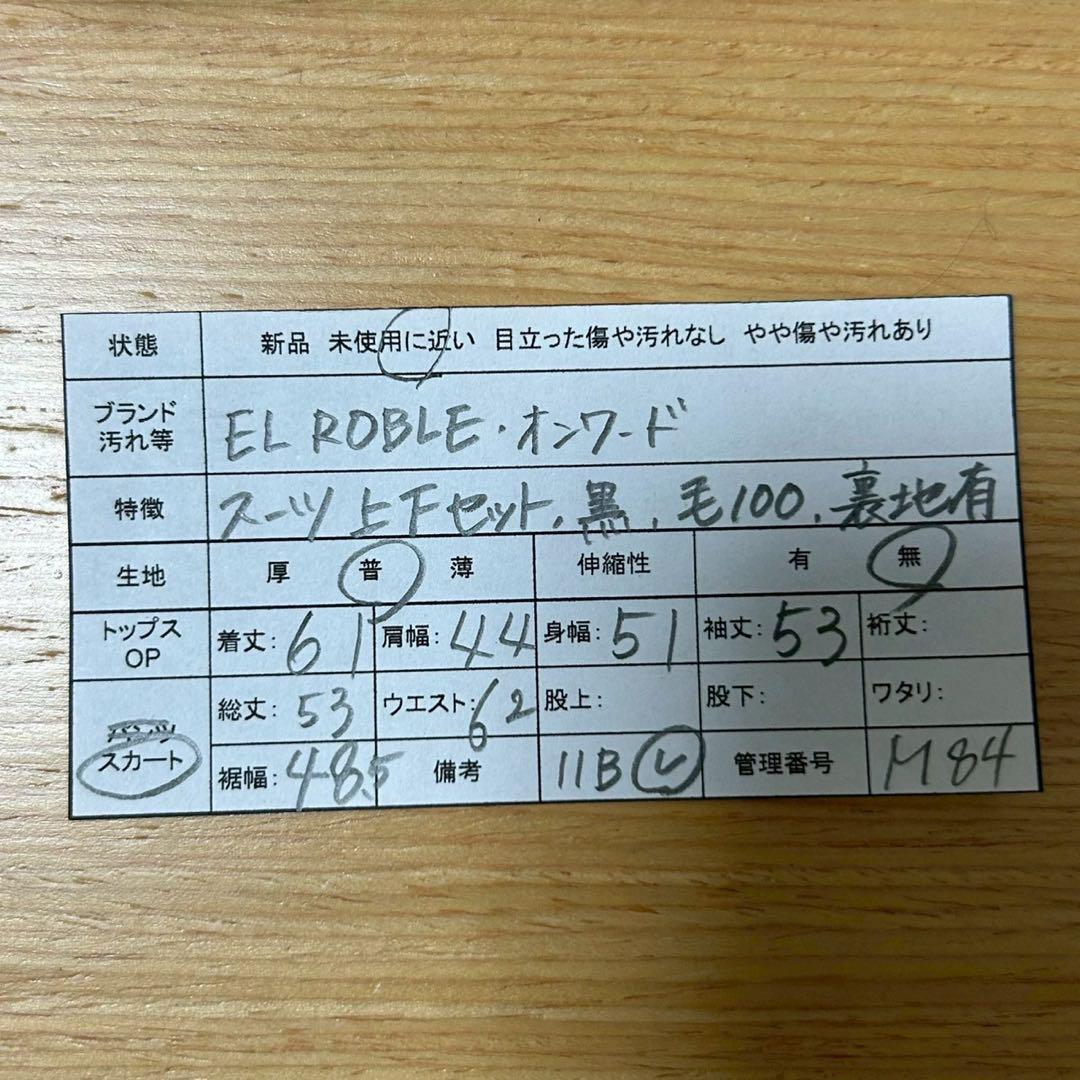 状態 新品 未使用に近い 目立った傷や汚れなし やや傷や汚れあり
ブランド
汚れ等 EL ROBLE・オンワード
特徴 スーツ上下セット、黒、毛100、裏地有
生地 厚 普 薄 伸縮性 有 無
トップス
OP 着丈:61 肩幅:44 身幅:51 袖丈:53 裄丈:
パンツ 総丈:53 ウエスト:62 股上: 股下: ワタリ:
スカート 裾幅:48.5 備考 11B レ 管理番号 M84